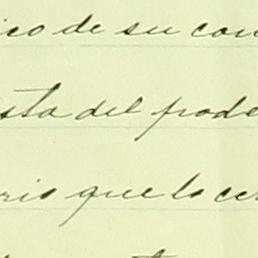 ico de su con
sta del pode
rio que lo ce